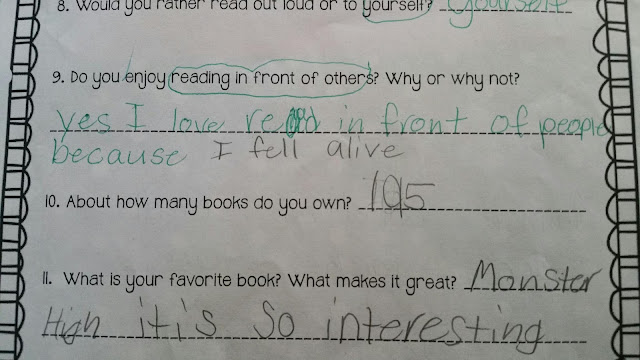 8. Would you rather read out loud or to yourself? yourself
9. Do you enjoy reading in front of others? Why or why not?
yes I love read in front of people
because I fell alive
10. About how many books do you own? 195
11. What is your favorite book? What makes it great? Monster
High it's so interesting